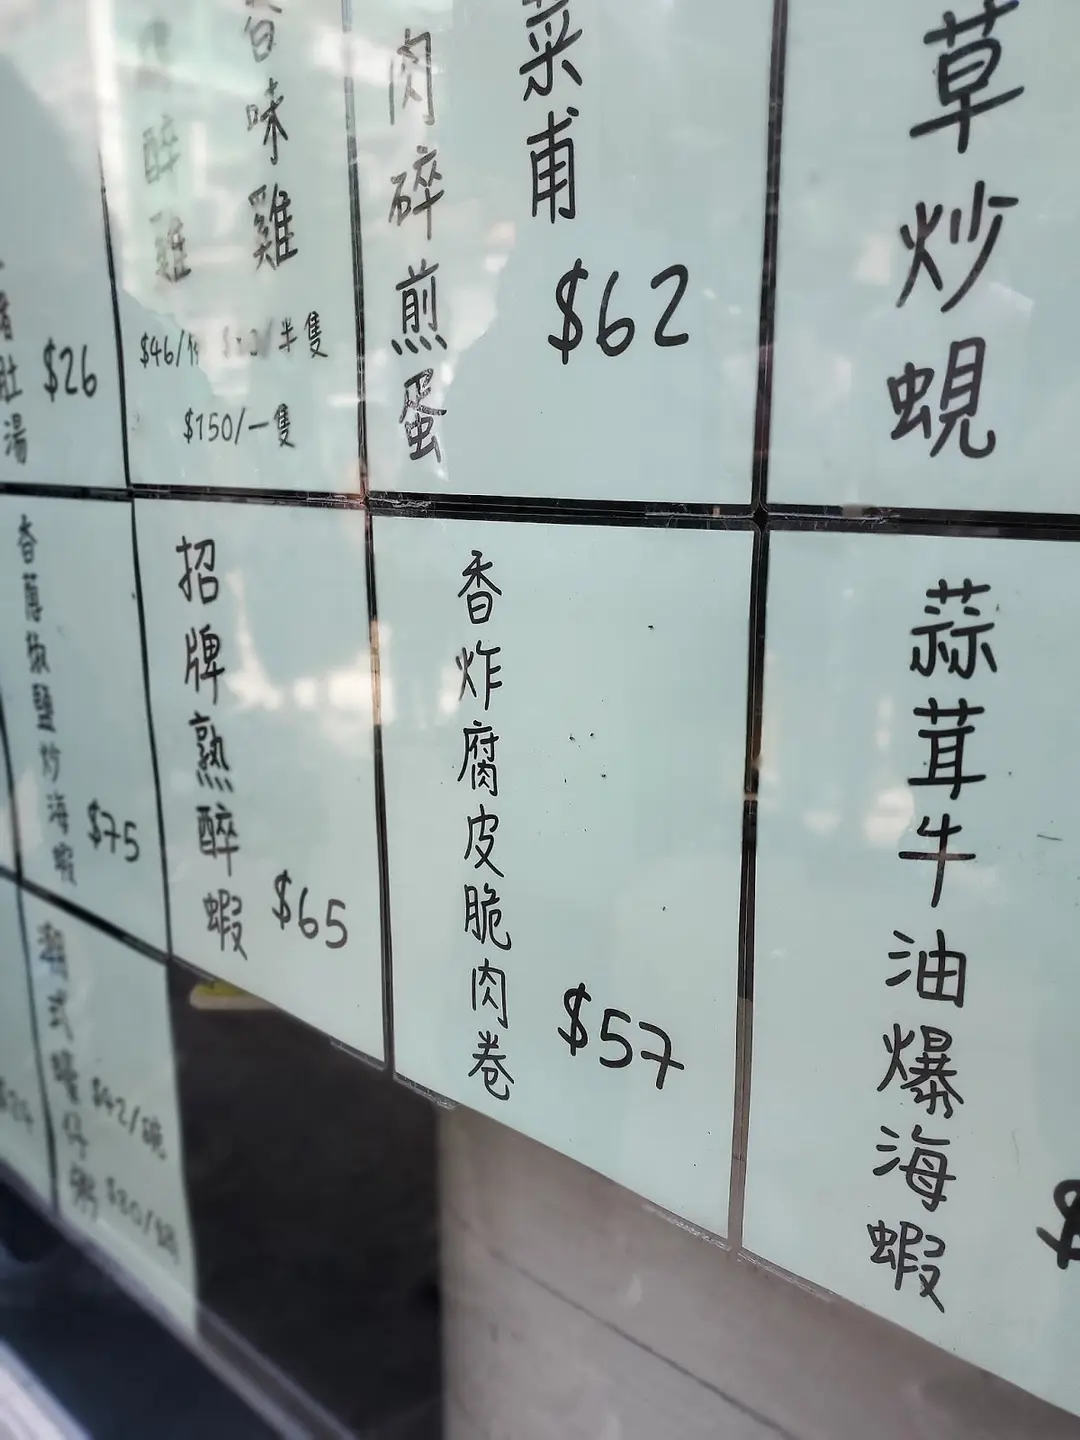 草炒蜆
菜甫
肉碎煎蛋
$62
味雞
醉雞
$46/
半隻
$150/一隻
肚湯
$26
蒜茸牛油爆海蝦
$
香炸腐皮脆肉卷
$57
招牌熟醉蝦
$65
香蒜椒鹽炒海蝦
$75
潮式蠔仔粥
$42/碗
$80/鍋
$24